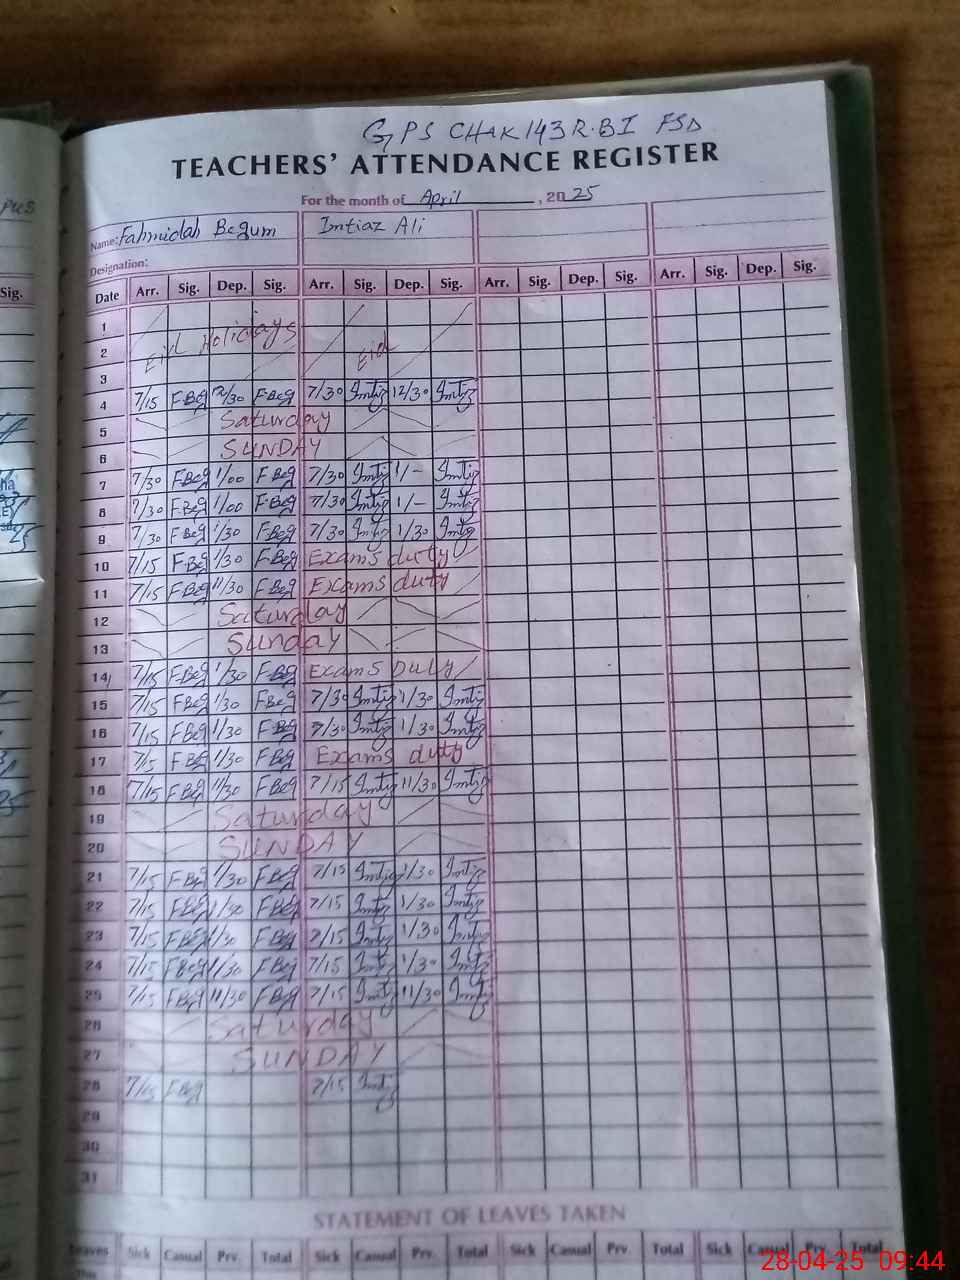 GPS CHAK 143 R.BI FSD
TEACHERS' ATTENDANCE REGISTER
For the month of April, 2025
Name: Fahmidah Begum Imtiaz Ali
Designation:
Date Arr. Sig. Dep. Sig. Arr. Sig. Dep. Sig. Arr. Sig. Dep. Sig. Arr. Sig. Dep. Sig.
1
2 Eid Holidays Eid
3
4 7/15 F.Beg 12/30 F.Beg 7/30 Imtiz 12/30 Imtiz
5 Saturday
6 SUNDAY
7 7/30 F.Beg 1/00 F.Beg 7/30 Imtiz 1/- Imtiz
8 7/30 F.Beg 1/00 F.Beg 7/30 Imtiz 1/- Imtiz
9 7/30 F.Beg 1/30 F.Beg 7/30 Imtiz 1/30 Imtiz
10 7/15 F.Beg 1/30 F.Beg Exams duty
11 7/15 F.Beg 11/30 F.Beg Exams duty
12 Saturday
13 Sunday
14 7/15 F.Beg 1/30 F.Beg Exams Duty
15 7/15 F.Beg 1/30 F.Beg 7/30 Imtiz 1/30 Imtiz
16 7/15 F.Beg 1/30 F.Beg 7/30 Imtiz 1/30 Imtiz
17 7/15 F.Beg 1/30 F.Beg Exams duty
18 7/15 F.Beg 11/30 F.Beg 7/15 Imtiz 11/30 Imtiz
19 Saturday
20 SUNDAY
21 7/15 F.Beg 1/30 F.Beg 7/15 Imtiz 1/30 Imtiz
22 7/15 F.Beg 1/30 F.Beg 7/15 Imtiz 1/30 Imtiz
23 7/15 F.Beg 1/30 F.Beg 7/15 Imtiz 1/30 Imtiz
24 7/15 F.Beg 1/30 F.Beg 7/15 Imtiz 1/30 Imtiz
25 7/15 F.Beg 11/30 F.Beg 7/15 Imtiz 11/30 Imtiz
26 Saturday
27 SUNDAY
28 7/15 F.Beg 7/15 Imtiz
29
30
31
STATEMENT OF LEAVES TAKEN
Leaves Sick Casual Prv. Total Sick Casual Prv. Total Sick Casual Prv. Total Sick Casual Prv. Total
28-04-25 09:44
Sig.